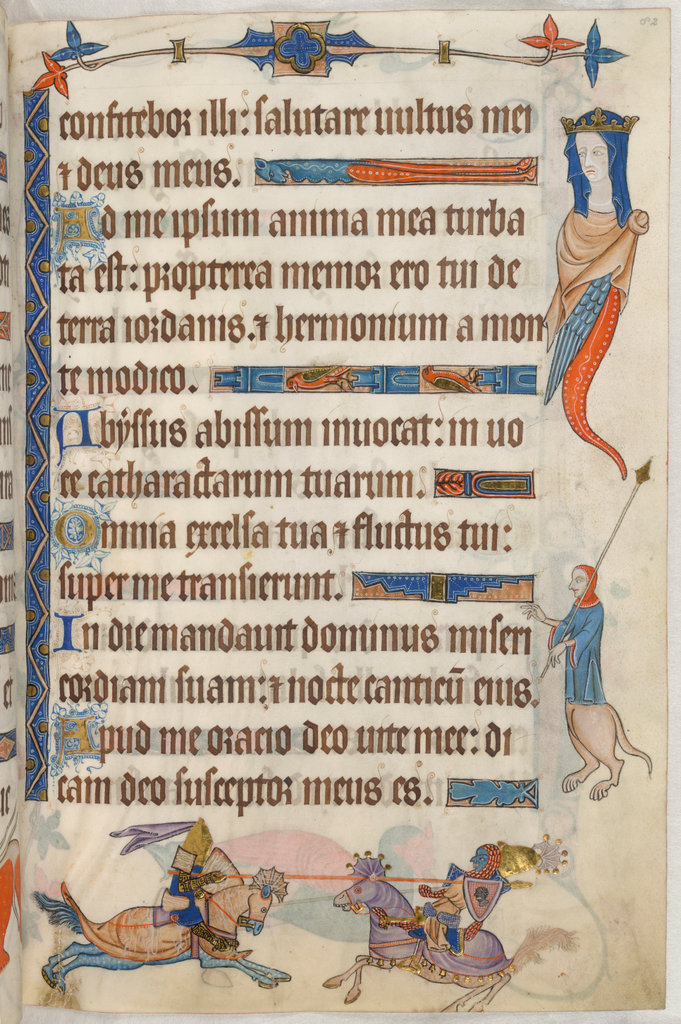 confitebor illi: salutare uultus mei
⁊ deus meus.
Ad me ipsum anima mea turba
ta est: propterea memor ero tui de
terra iordanis. ⁊ hermonium a mon
te modico.
Abyssus abissum inuocat: in uo
ce catharactarum tuarum.
Omnia excelsa tua ⁊ fluctus tui:
super me transierunt.
In die mandauit dominus miseri
cordiam suam: ⁊ nocte canticū eius.
Apud me oracio deo uite mee: di
cam deo susceptor meus es.
82